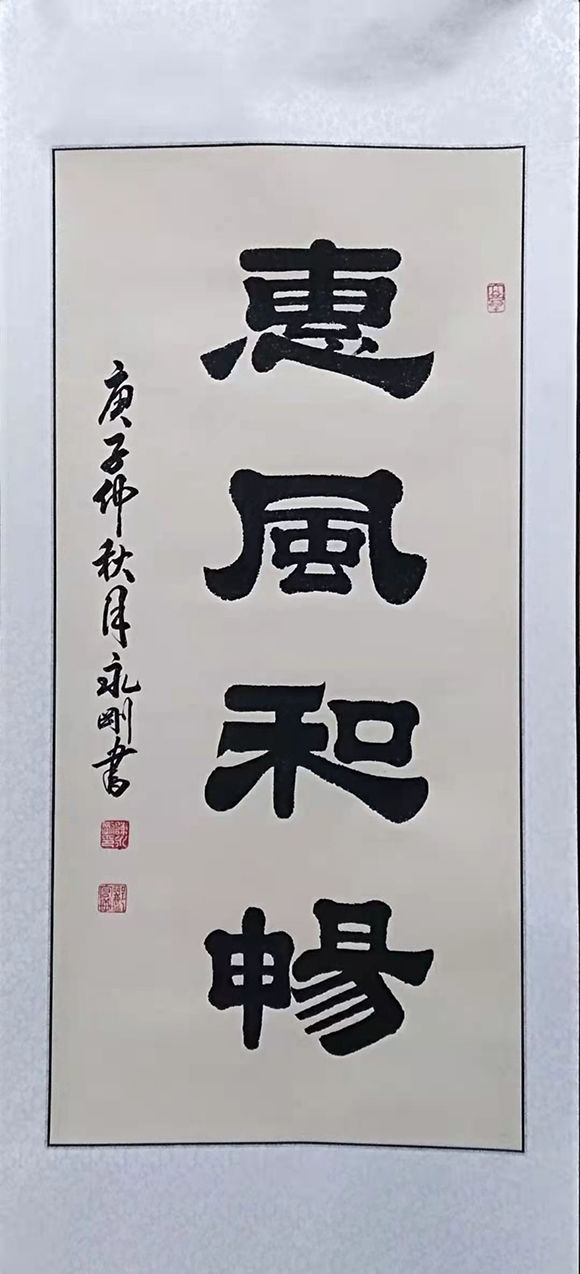 惠風和暢
庚子仲秋月永剛書